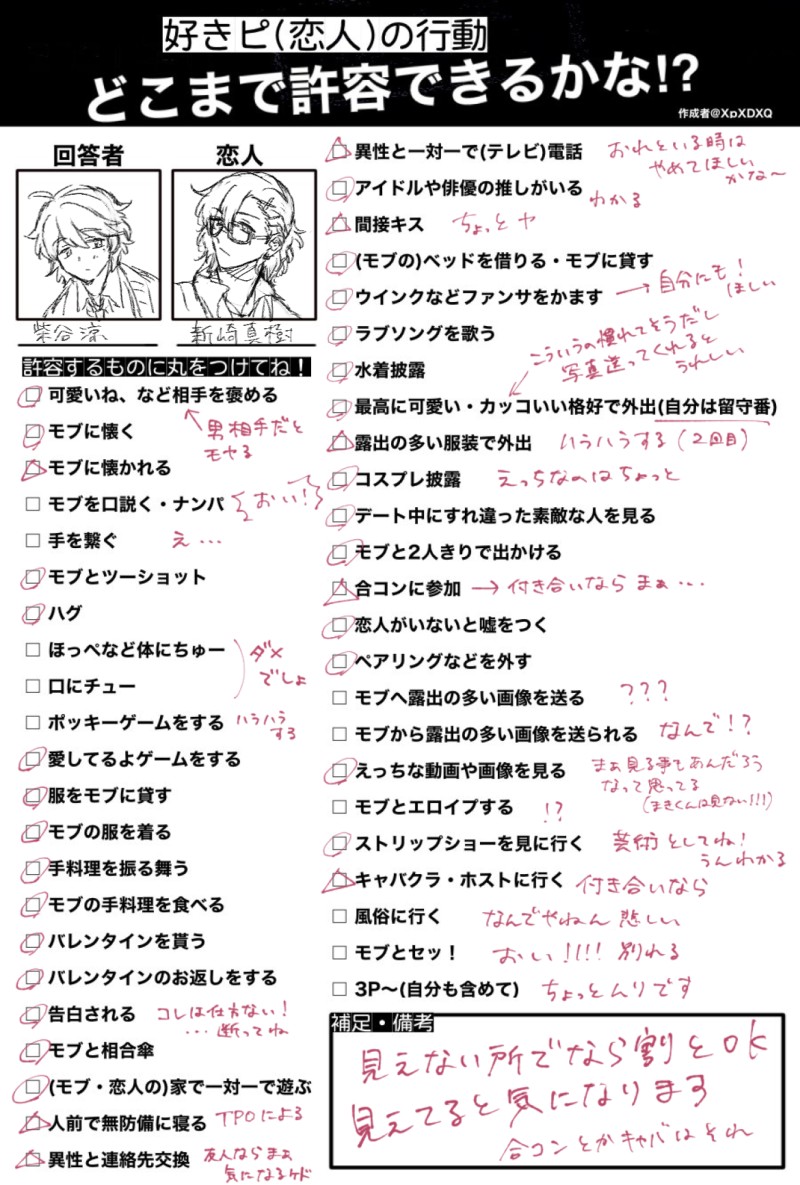 好きピ(恋人)の行動
どこまで許容できるかな!?
作成者@XpXDXQ
回答者
恋人
柴谷 涼
新崎真樹
許容するものに丸をつけてね!
□ 可愛いね、など相手を褒める
男相手だと
モヤる
□ モブに懐く
□ モブに懐かれる
□ モブを口説く・ナンパ
おい!
□ 手を繋ぐ
え…
□ モブとツーショット
□ ハグ
□ ほっぺなど体にちゅー
□ 口にチュー
ダメ
でしょ
□ ポッキーゲームをする
ハラハラ
する
□ 愛してるよゲームをする
□ 服をモブに貸す
□ モブの服を着る
□ 手料理を振る舞う
□ モブの手料理を食べる
□ バレンタインを貰う
□ バレンタインのお返しをする
□ 告白される
コレは仕方ない!
…断ってね
□ モブと相合傘
□ (モブ・恋人の)家で一対一で遊ぶ
□ 人前で無防備に寝る
TPOによる
□ 異性と連絡先交換
友人ならまぁ
気になるケド
□ 異性と一対一で(テレビ)電話
おれといる時は
やめてほしい
かな〜
□ アイドルや俳優の推しがいる
わかる
□ 間接キス
ちょっとヤ
□ (モブの)ベッドを借りる・モブに貸す
□ ウインクなどファンサをかます
→自分にも!
ほしい
□ ラブソングを歌う
□ 水着披露
こういうの慣れてそうだし
写真送ってくれると
うれしい
□ 最高に可愛い・カッコいい格好で外出(自分は留守番)
□ 露出の多い服装で外出
ハラハラする(2回目)
□ コスプレ披露
えっちなのはちょっと
□ デート中にすれ違った素敵な人を見る
□ モブと2人きりで出かける
□ 合コンに参加
→付き合いならまぁ…
□ 恋人がいないと嘘をつく
□ ペアリングなどを外す
□ モブへ露出の多い画像を送る
???
□ モブから露出の多い画像を送られる
なんで!?
□ えっちな動画や画像を見る
まぁ見る事もあんだろう
なって思ってる
(まきくんは見ない!!!)
□ モブとエロイプする
!?
□ ストリップショーを見に行く
芸術としてね!
うんわかる
□ キャバクラ・ホストに行く
付き合いなら
□ 風俗に行く
なんでやねん 悲しい
□ モブとセッ!
おい!!!! 別れる
□ 3P〜(自分も含めて)
ちょっとムリです
補足・備考
見えない所でなら割とOK
見えてると気になります
合コンとかキャバはそれ